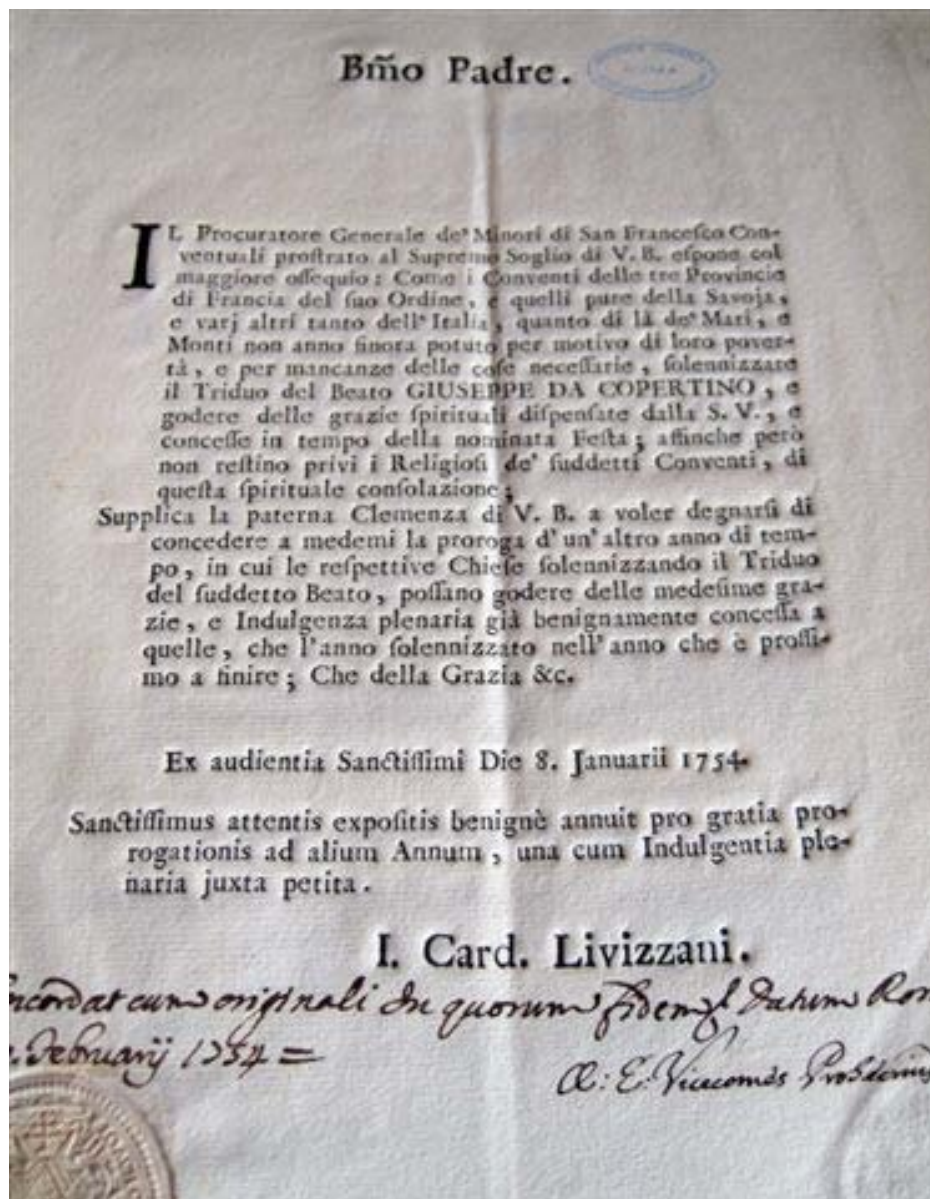 Bm̃o Padre.
IL Procuratore Generale de' Minori di San Francesco Con-
ventuali proſtrato al Supremo Soglio di V. B. eſpone col
maggiore oſſequio: Come i Conventi delle tre Provincie
di Francia del ſuo Ordine, e quelli pure della Savoja,
e varj altri tanto dell' Italia, quanto di là de' Mari, e
Monti non anno finora potuto per motivo di loro pover-
tà, e per mancanze delle coſe neceſſarie, ſolennizzare
il Triduo del Beato GIUSEPPE DA COPERTINO, e
godere delle grazie ſpirituali diſpenſate dalla S. V., e
conceſſe in tempo della nominata Feſta; affinche però
non reſtino privi i Religioſi de' ſuddetti Conventi, di
queſta ſpirituale conſolazione;
Supplica la paterna Clemenza di V. B. a voler degnarſi di
concedere a medemi la proroga d' un' altro anno di tem-
po, in cui le reſpettive Chieſe ſolennizzando il Triduo
del ſuddetto Beato, poſſano godere delle medeſime gra-
zie, e Indulgenza plenaria già benignamente conceſſa a
quelle, che l'anno ſolennizzato nell' anno che è proſſi-
mo a finire; Che della Grazia &c.
Ex audientia Sanctiſſimi Die 8. Januarii 1754.
Sanctiſſimus attentis expoſitis benignè annuit pro gratia pro-
rogationis ad alium Annum, una cum Indulgentia ple-
naria juxta petita.
I. Card. Livizzani.
cum originali In quorum fidem Datum Rom
Februarij 1754 =
Vicecomes